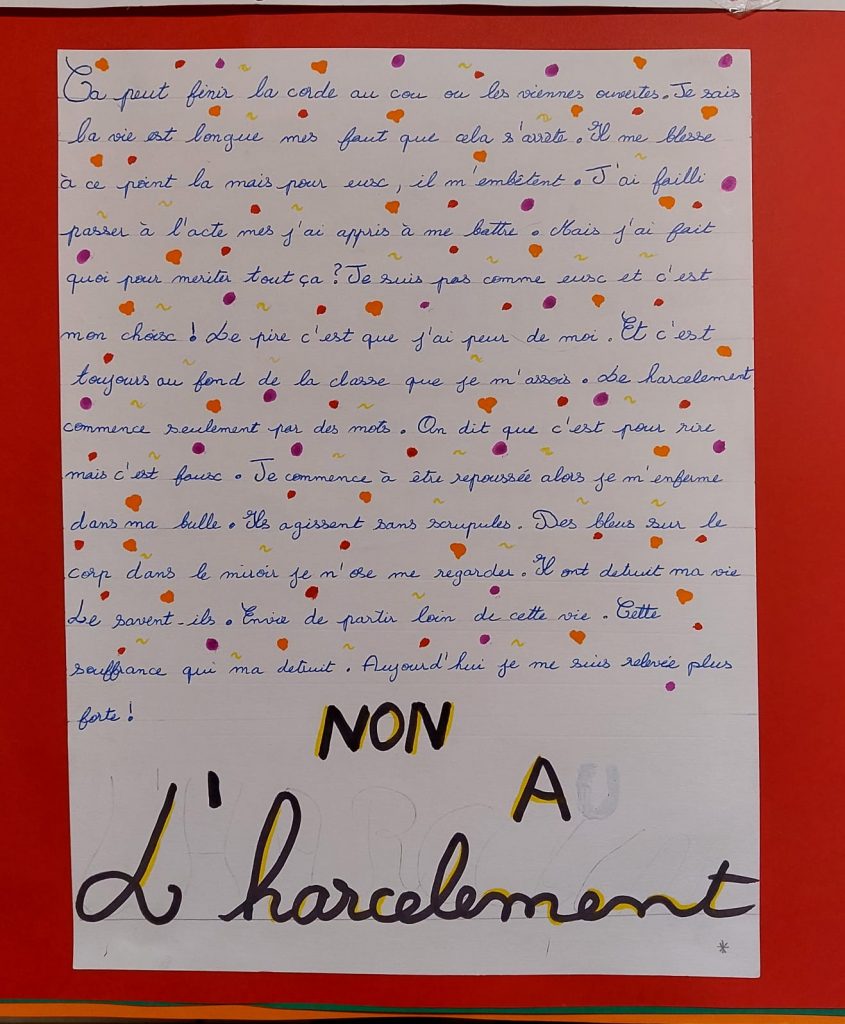 Ca peut finir la corde au cou ou les viennes ouvertes. Je sais
la vie est longue mes faut que cela s'arrète. Il me blesse
à ce point la mais pour eusc, il m'embêtent. J'ai failli
passer à l'acte mes j'ai appris à me battre. Mais j'ai fait
quoi pour meriter tout ça ? Je suis pas comme eusc et c'est
mon choisc ! Le pire c'est que j'ai peur de moi. Et c'est
toujours au fond de la classe que je m'assois. Le harcelement
commence seulement par des mots. On dit que c'est pour rire
mais c'est fausc. Je commence à être repoussée alors je m'enferme
dans ma bulle. Ils agissent sans scrupules. Des bleus sur le
corp dans le miroir je n'ose me regarder. Il ont detruit ma vie
Le savent-ils. Envie de partir loin de cette vie. Cette
souffrance qui ma detruit. Aujourd'hui je me suis relevée plus
forte !
NON
AU
L'harcelement
*